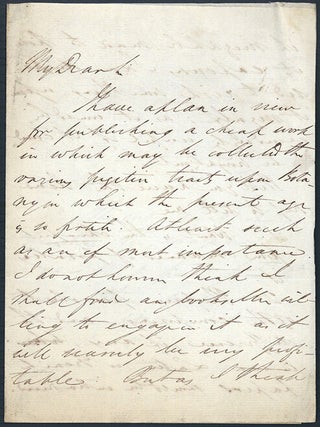 My Dear
I have a plan in view
for publishing a cheap work
in which may be collected the
various fugitive tracts upon Bota-
ny in which the present age
is so fertile. At least such
as are of most importance.
I do not however think I
shall find any bookseller wil-
ling to engage in it as it
will scarcely be very profi-
table. But as I think